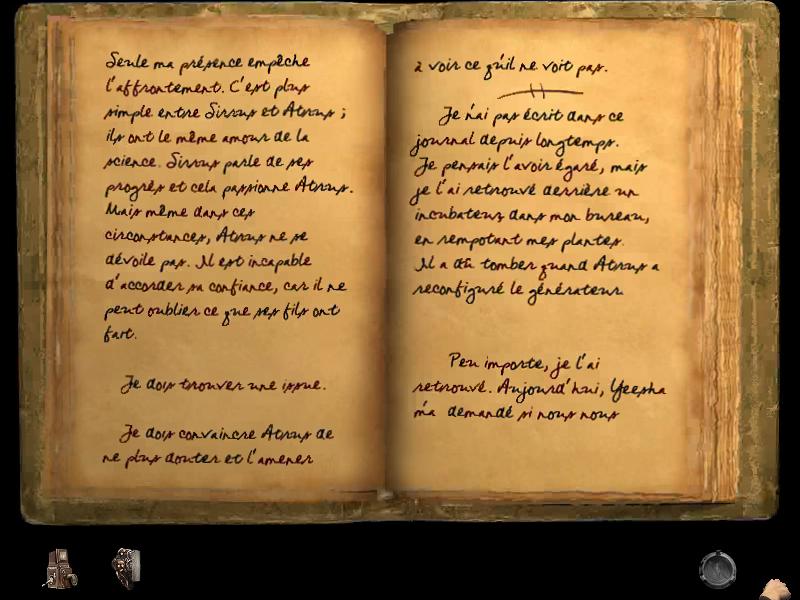 Seule ma présence empêche
l'affrontement. C'est plus
simple entre Sirrus et Atrus ;
ils ont le même amour de la
science. Sirrus parle de ses
progrès et cela passionne Atrus.
Mais même dans ces
circonstances, Atrus ne se
dévoile pas. Il est incapable
d'accorder sa confiance, car il ne
peut oublier ce que ses fils ont
fait.
Je dois trouver une issue.
Je dois convaincre Atrus de
ne plus douter et l'amener
à voir ce qu'il ne voit pas.
Je n'ai pas écrit dans ce
journal depuis longtemps.
Je pensais l'avoir égaré, mais
je l'ai retrouvé derrière un
incubateur dans mon bureau,
en rempotant mes plantes.
Il a dû tomber quand Atrus a
reconfiguré le générateur.
Peu importe, je l'ai
retrouvé. Aujourd'hui, Yeesha
m'a demandé si nous nous